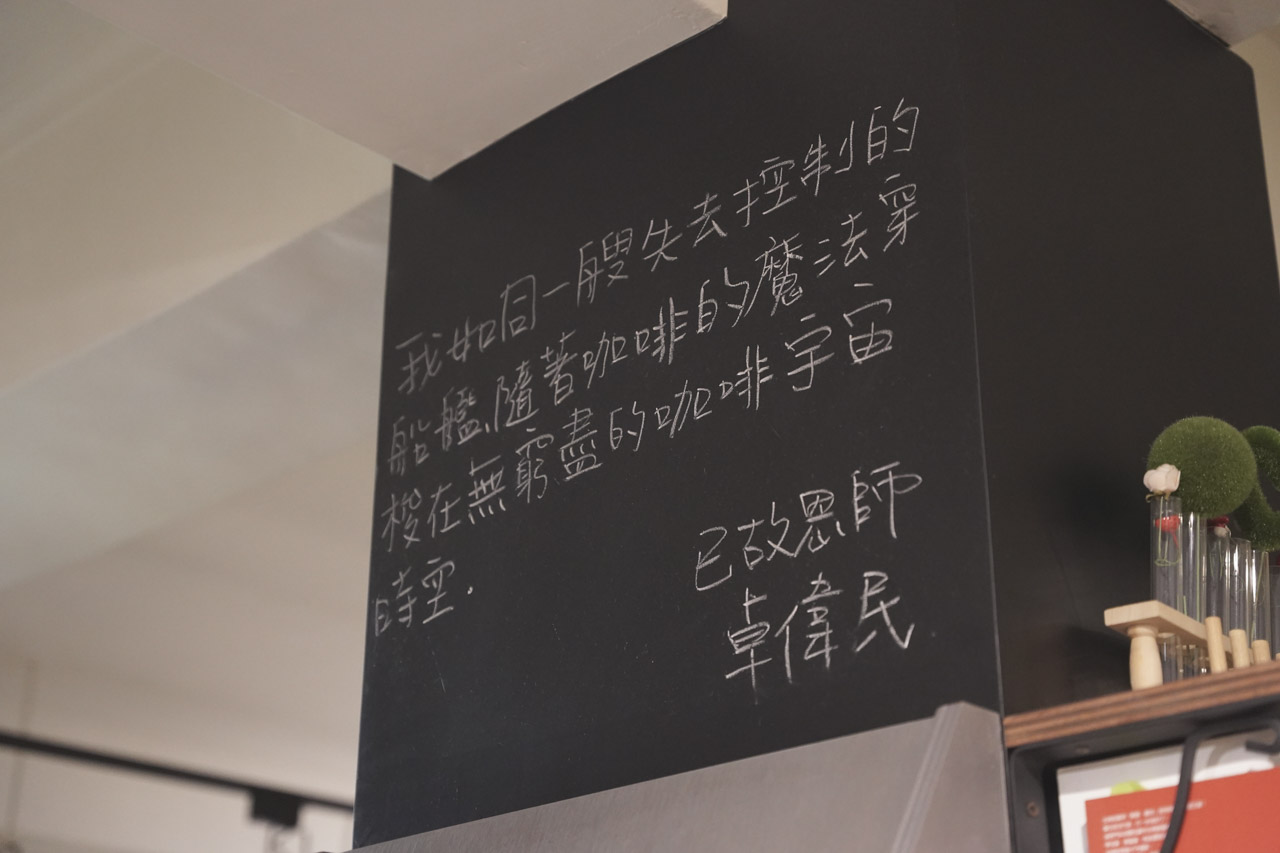 我如同一艘失去控制的
船艦,隨著咖啡的魔法穿
梭在無窮盡的咖啡宇宙
時空.
已故恩師
卓偉民